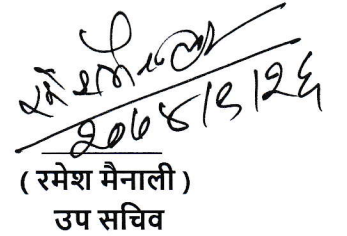 २०७४।९।२६
( रमेश मैनाली )
उप सचिव